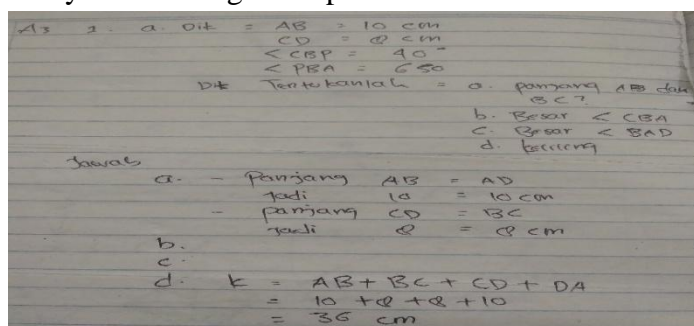 A3 1. a. Dit = AB = 10 cm
CD = 8 cm
< CBP = 40°
< PBA = 650
Dit Tentukanlah = a. panjang AB dan
BC?
b. Besar < CBA
c. Besar < BAD
d. keliling
Jawab
a. - Panjang AB = AD
Jadi 10 = 10 cm
- panjang CD = BC
Jadi 8 = 8 cm
b.
c.
d. k = AB + BC + CD + DA
= 10 + 8 + 8 + 10
= 36 cm